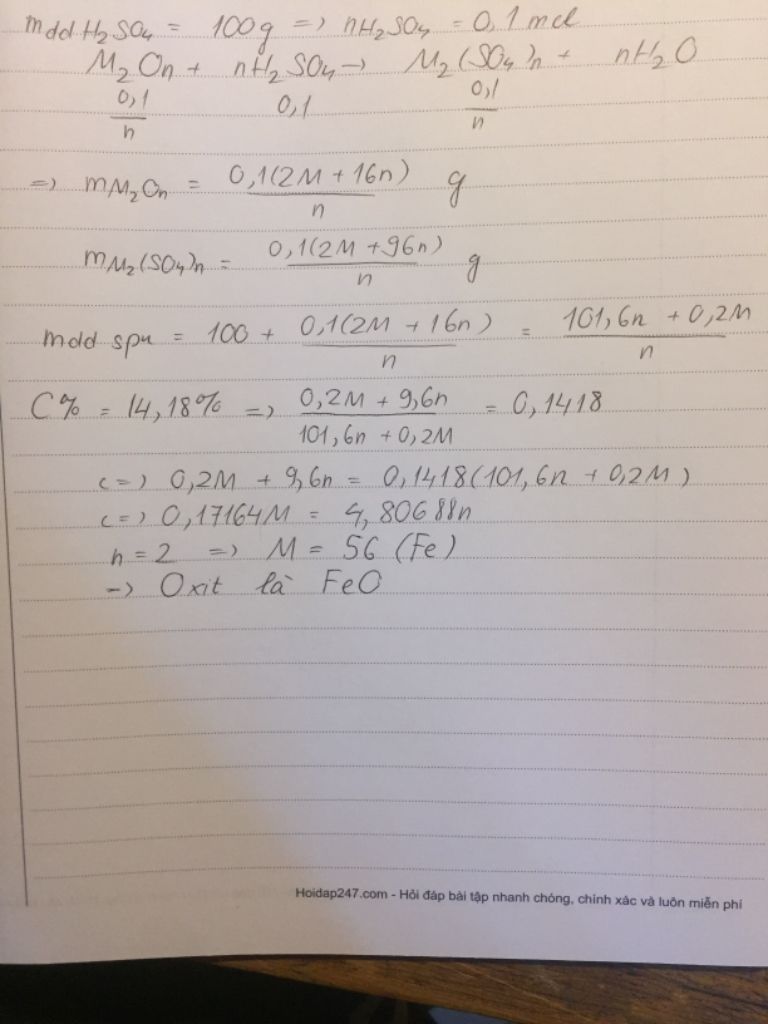 mdd H₂SO₄ = 100g => nH₂SO₄ = 0,1 mol
M₂On + nH₂SO₄ -> M₂(SO₄)n + nH₂O
0,1/n 0,1 0,1/n
=> mM₂On = 0,1(2M + 16n)/n g
mM₂(SO₄)n = 0,1(2M + 96n)/n g
mdd spu = 100 + 0,1(2M + 16n)/n = 101,6n + 0,2M/n
C% = 14,18% => 0,2M + 9,6n/101,6n + 0,2M = 0,1418
<=> 0,2M + 9,6n = 0,1418(101,6n + 0,2M)
<=> 0,17164M = 4,80688n
n = 2 => M = 56 (Fe)
-> Oxit là FeO
Hoidap247.com - Hỏi đáp bài tập nhanh chóng, chính xác và luôn miễn phí